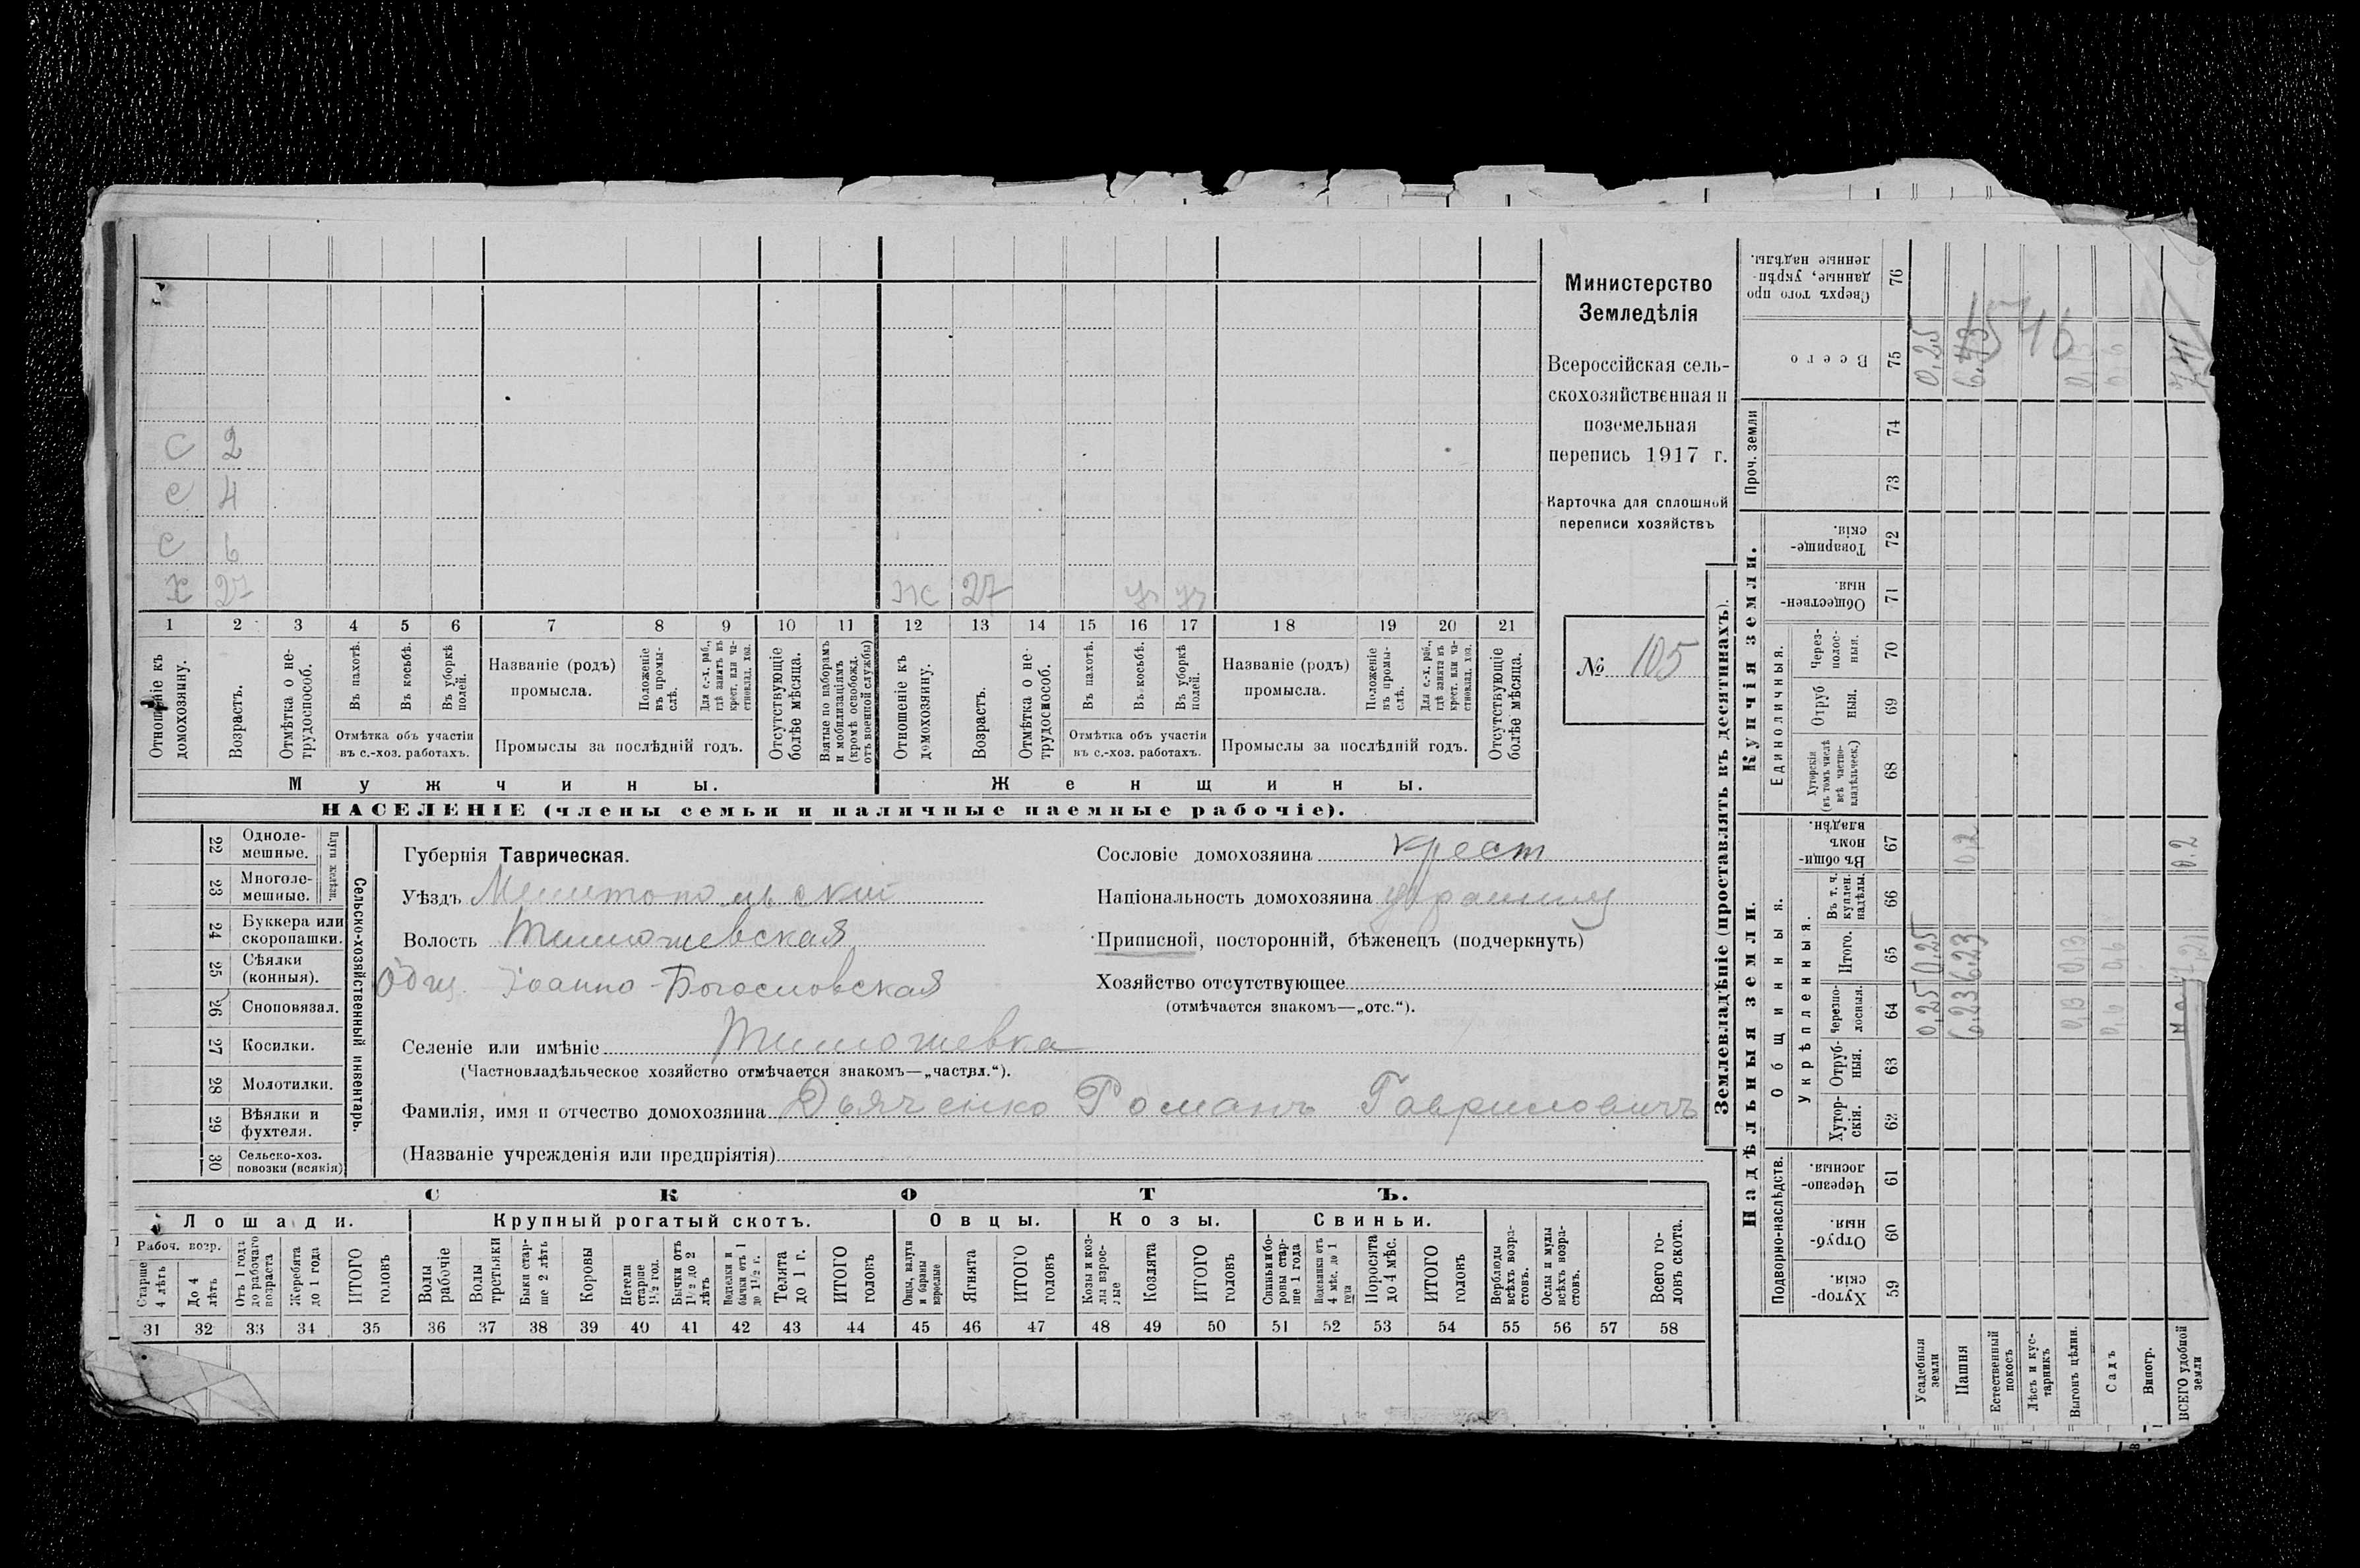 С 2
С 4
С 6
Х 27 Ж 27
1 2 3 4 5 6 7 8 9 10 11 12 13 14 15 16 17 18 19 20 21
Отношеніе къ домохозяину.
Возрастъ.
Отмѣтка о не-трудоспособ.
Въ пахотѣ.
Въ косьбѣ.
Въ уборкѣ полей.
Отмѣтка объ участіи
въ с.-хоз. работахъ.
Названіе (родъ)
промысла.
Положеніе въ промы-слѣ.
Для с.-х. раб., гдѣ занятъ въ крест. или ча-стновлад. хоз.
Промыслы за послѣдній годъ.
Отсутствующіе болѣе мѣсяца.
Взятые по наборамъ и мобилизаціямъ (кромѣ освобожд. отъ военной службы)
Отношеніе къ домохозяину.
Возрастъ.
Отмѣтка о не-трудоспособ.
Въ пахотѣ.
Въ косьбѣ.
Въ уборкѣ полей.
Отмѣтка объ участіи
въ с.-хоз. работахъ.
Названіе (родъ)
промысла.
Положеніе въ промы-слѣ.
Для с.-х. раб., гдѣ занята въ крест. или ча-стновлад. хоз.
Промыслы за послѣдній годъ.
Отсутствующіе болѣе мѣсяца.
Мужчины. Женщины.
НАСЕЛЕНІЕ (члены семьи и наличные наемные рабочіе).
Министерство
Земледѣлія
Всероссійская сель-
скохозяйственная и
поземельная
перепись 1917 г.
Карточка для сплошной
переписи хозяйствъ
№ 105
Сельско-хозяйственный инвентарь.
Плуги желѣзн.
22 Одноле-мешные.
23 Многоле-мешные.
24 Буккера или скоропашки.
25 Сѣялки (конныя).
26 Сноповязал.
27 Косилки.
28 Молотилки.
29 Вѣялки и фухтеля.
30 Сельско-хоз. повозки (всякія)
Губернія Таврическая.
Уѣздъ Мелитопольскій
Волость Тимошевская
Общ. Іоанно-Богословская
Селеніе или имѣніе Тимошевка
(Частновладѣльческое хозяйство отмѣчается знакомъ—„частвл.“).
Фамилія, имя и отчество домохозяина Дьяченко Романъ Гавриловичъ
(Названіе учрежденія или предпріятія)
Сословіе домохозяина крест
Національность домохозяина украинец
Приписной, посторонній, бѣженецъ (подчеркнуть)
Хозяйство отсутствующее
(отмѣчается знакомъ—„отс.“).
СКОТЪ.
Лошади. Крупный рогатый скотъ. Овцы. Козы. Свиньи.
Рабоч. возр.
Старше 4 лѣтъ
До 4 лѣтъ
Отъ 1 года до рабочаго возраста
Жеребята до 1 года
ИТОГО головъ
Волы рабочіе
Волы третьяки
Быки стар-ше 2 лѣтъ
Коровы
Нетели старше 1½ год.
Бычки отъ 1½ до 2 лѣтъ
Подтелки и бычки отъ 1 до 1½ г.
Телята до 1 г.
ИТОГО головъ
Овцы, валухи и бараны взрослые
Ягнята
ИТОГО головъ
Козы и коз-лы взрос-лые
Козлята
ИТОГО головъ
Свиньи и бо-ровы стар-ше 1 года
Подсвинки отъ 4 мѣс. до 1 года
Поросята до 4 мѣс.
ИТОГО головъ
Верблюды всѣхъ возра-стовъ.
Ослы и мулы всѣхъ возра-стовъ.
Всего го-ловъ скота.
31 32 33 34 35 36 37 38 39 40 41 42 43 44 45 46 47 48 49 50 51 52 53 54 55 56 57 58
Землевладѣніе (проставлять въ десятинахъ).
Надѣльныя земли.
Купчія земли.
Проч. земли
Подворно-наслѣдств.
Общинныя.
Укрѣпленныя.
Единоличныя.
59 Хутор-скія.
60 Отруб-ныя.
61 Черезпо-лосныя.
62 Хутор-скія.
63 Отруб-ныя.
64 Черезпо-лосныя.
65 Итого.
66 Въ т. ч. куплен. надѣлы.
67 Въ общин-номъ владѣн.
68 Хуторскія (въ томъ числѣ всѣ частно-владѣльческ.)
69 Отруб ныя.
70 Через-полос-ныя.
71 Обществен-ныя.
72 Товарище-скія.
73
74
75 Всего
76 Сверхъ того про данные, укрѣп-ленные надѣлы.
Усадебныя земли 0,25 0,25 0,25
Пашня 6.23 6.23 0,2 6,43
Естественный покосъ
Лѣсъ и кус-тарникъ
Выгонъ цѣлин. 0,13 0,13 0,13
Садъ 0,6 0,6 0,6
Виногр.
ВСЕГО удобной земли 0.2
1546